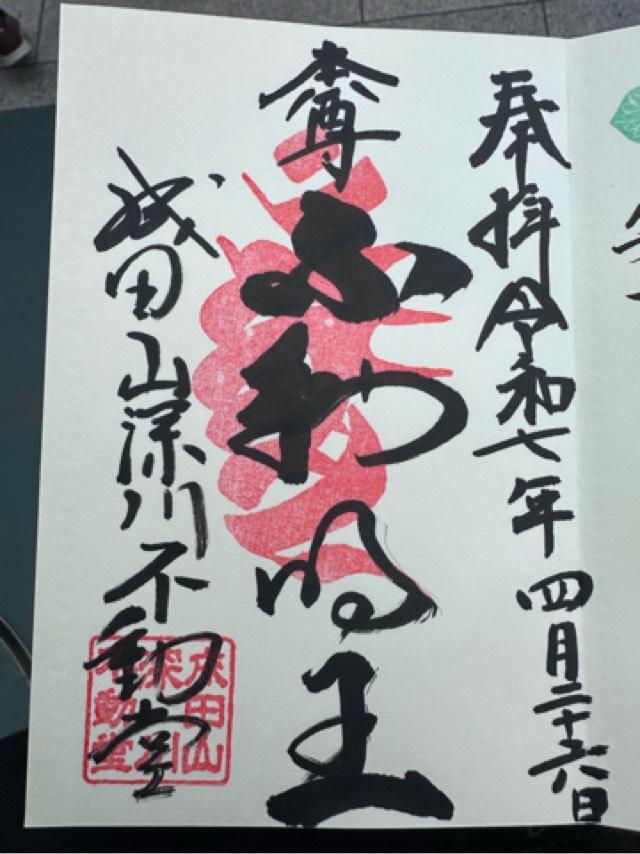 奉拝令和七年四月二十六日
本尊不動明王
成田山深川不動堂
成田山
深川
不動堂